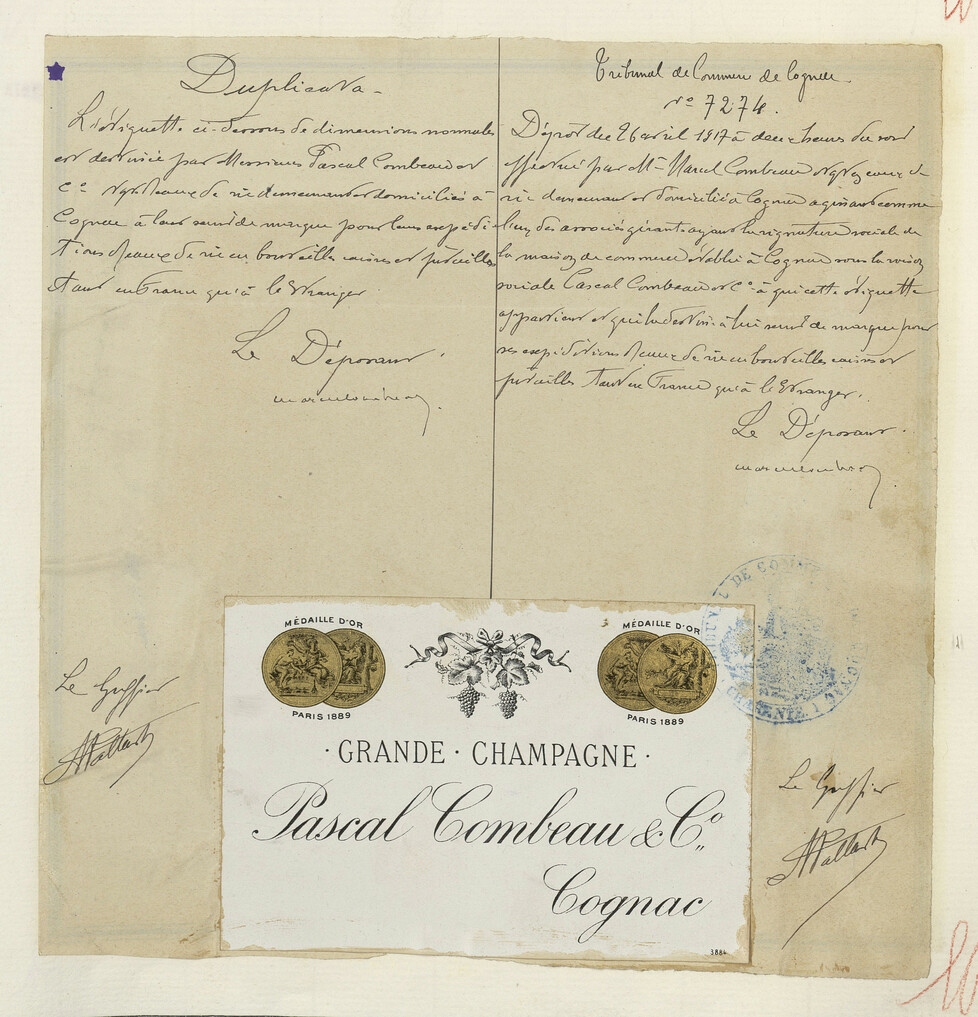 Duplicata
L'étiquette ci-dessous de dimensions normales
est destinée par Messieurs Pascal Combeau et
Cº négts eaux de vie demeurant et domiciliés à
Cognac à leur servir de marque pour leurs expédi-
tions d'eaux de vie en bouteilles caisses et futailles
tant en France qu'à l'Etranger
Le Déposant
Tribunal de Commerce de Cognac
Nº 7274.
Dépôt du 26 avril 1917 à deux heures du soir
effectué par Mr Marcel Combeau négt eaux de
vie demeurant et domicilié à Cognac agissant comme
l'un des associés gérants ayant la signature sociale de
la maison de commerce établie à Cognac sous la raison
sociale Pascal Combeau et Cº à qui cette étiquette
appartient et qui la destine à lui servir de marque pour
ses expéditions d'eaux de vie en bouteilles caisses et
futailles tant en France qu'à l'Etranger.
Le Déposant
Le Greffier
MÉDAILLE D'OR
PARIS 1889
MÉDAILLE D'OR
PARIS 1889
· GRANDE · CHAMPAGNE ·
Pascal Combeau & Cº
Cognac
3884
Le Greffier